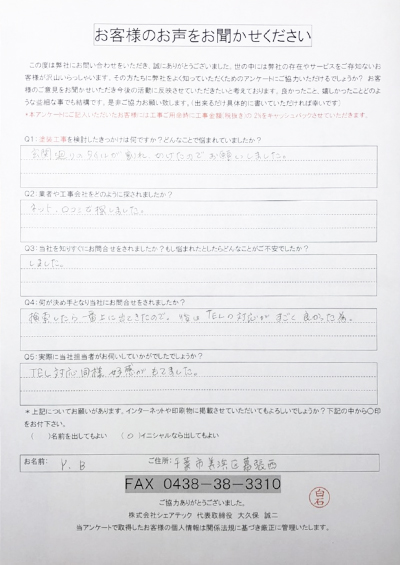 お客様のお声をお聞かせください
この度は弊社にお問い合わせをいただき、誠にありがとうございました。世の中には弊社の存在やサービスをご存知ないお
客様が沢山いらっしゃいます。その方たちに弊社をよく知っていただくためのアンケートにご協力いただけるでしょうか？お客
様のご意見をお聞かせいただき今後の活動に反映させていただきたいと考えております。良かったこと、嬉しかったことどのよ
うな些細な事でも結構です。是非ご協力お願い致します。(出来るだけ具体的に書いていただければ幸いです)
*本アンケートにご記入いただいたお客様には工事ご用命時に工事金額(税抜き)の2%をキャッシュバックさせていただきます。
Q1:塗装工事を検討したきっかけは何ですか？どんなことで悩まれていましたか？
玄関廻りのタイルが割れ、かけたのでお願いしました。
Q2:業者や工事会社をどのように探されましたか？
ネット、口コミで探しました。
Q3:当社を知りすぐにお問合せをされましたか？もし悩まれたとしたらどんなことがご不安でしたか？
しました。
Q4:何が決め手となり当社にお問合せをされましたか？
検索したら一番上に出てきたので。 TELの対応がすごく良かった為。
Q5:実際に当社担当者がお伺いしていかがでしたでしょうか？
TEL対応同様、好感がもてました。
*上記についてお願いがあります。インターネットや印刷物に掲載させていただいてもよろしいでしょうか？下記の中から〇印
をお付下さい。
( )名前を出してもよい (○)イニシャルなら出してもよい
お名前: Y.B ご住所: 千葉市美浜区幕張西
FAX 0438-38-3310
ご協力ありがとうございました。
株式会社シェアテック 代表取締役 大久保 誠二
当アンケートで取得したお客様の個人情報は関係法規に基づき厳正に管理いたします。
白石